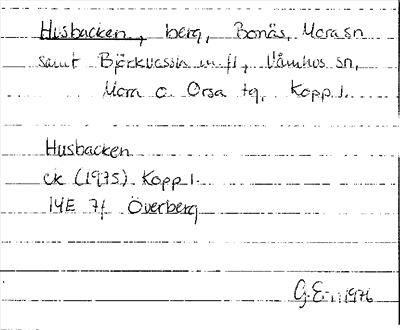 Husbacken, berg, Bonäs, Mora sn
samt Björkvassla m fl, Våmhus sn,
Mora o. Orsa tg, Kopp l.
Husbacken
ek (1975) Kopp l.
14E 7f Överberg
G.E-n 1976